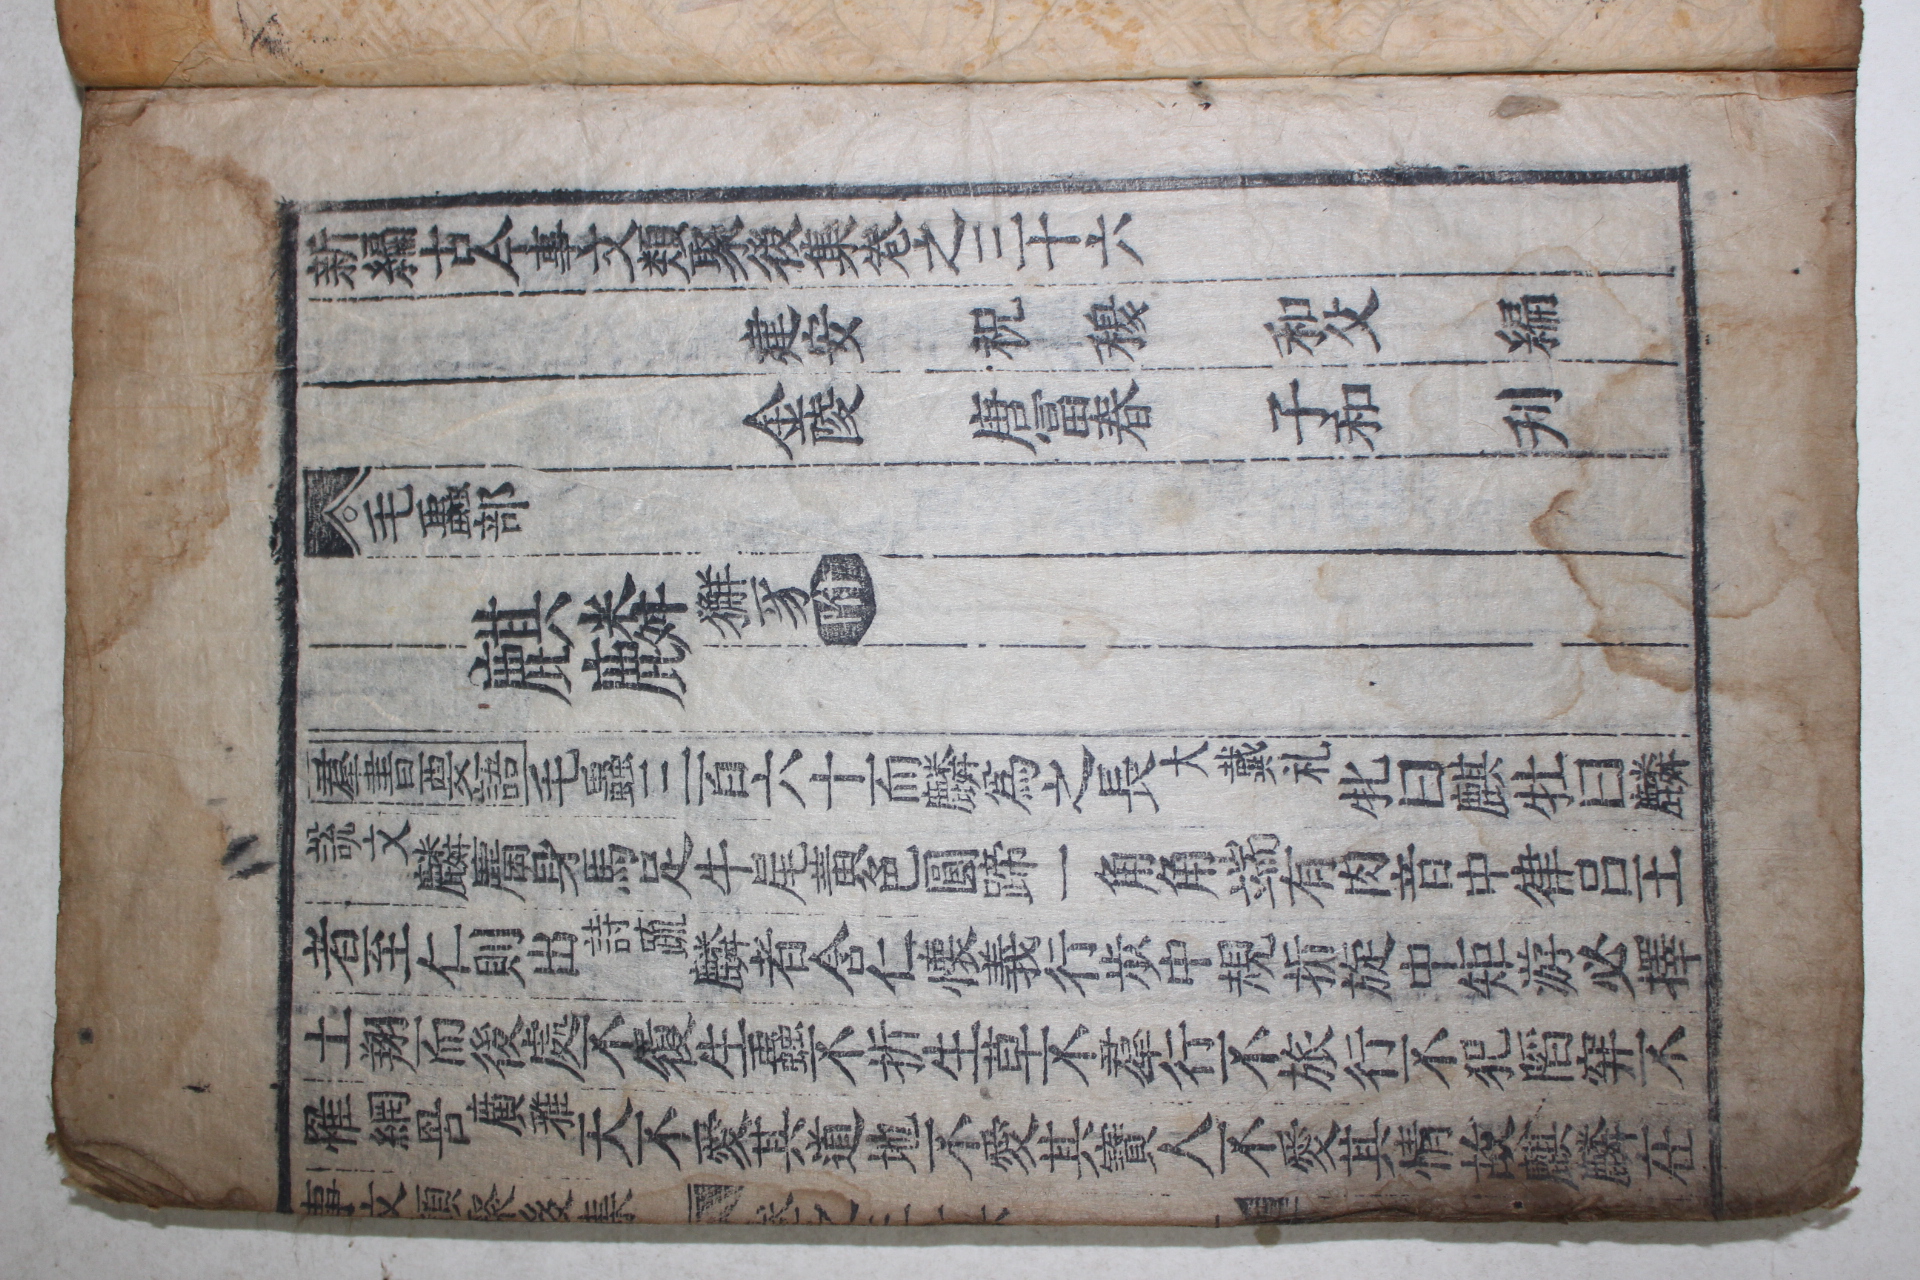 新編古今事文類聚後集卷之三十六
建安 祝 穆 和父 編
金陵 唐富春 子和 刋
毛蟲部
麒麟 獬豸附
羣書要語 毛蟲三百六十而麟爲之長 大戴礼 牝曰麒牡曰麟
說文 麟麕身馬足牛尾黃色圓蹄一角角端有肉音中律呂王
者至仁則出 詩疏 麟者含仁懷義行步中規折旋中矩游必擇
土翔而後處不復生蟲不折生草不羣行不旅行不犯陷穽不
罹網罟 廣雅 天不愛其道地不愛其寶人不愛其情故麒麟在
事文類聚後集 卷之三十六